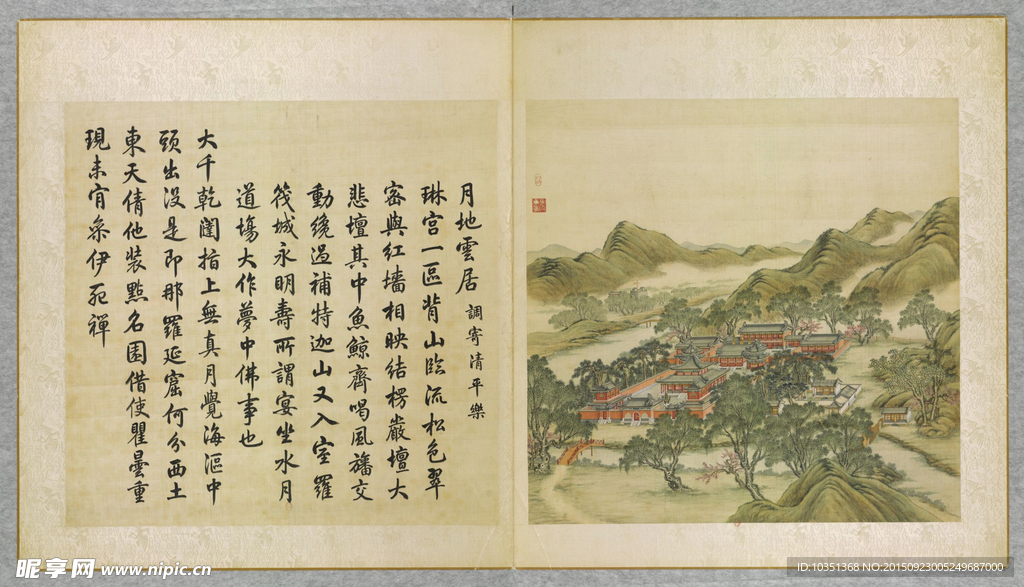 月地雲居 調寄清平樂
琳宮一區背山臨流松色翠
密與紅墻相映結楞嚴壇大
悲壇其中魚鯨齊喝風旛交
動纔過補特迦山又入室羅
筏城永明壽所謂宴坐水月
道場大作夢中佛事也
大千乾闥指上無真月覺海漚中
頭出沒是即那羅延窟何分西土
東天倩他裝點名園借使瞿曇重
現未肯叅伊死禪
昵享网 www.nipic.cn
ID:10351368 NO:20150923005249687000